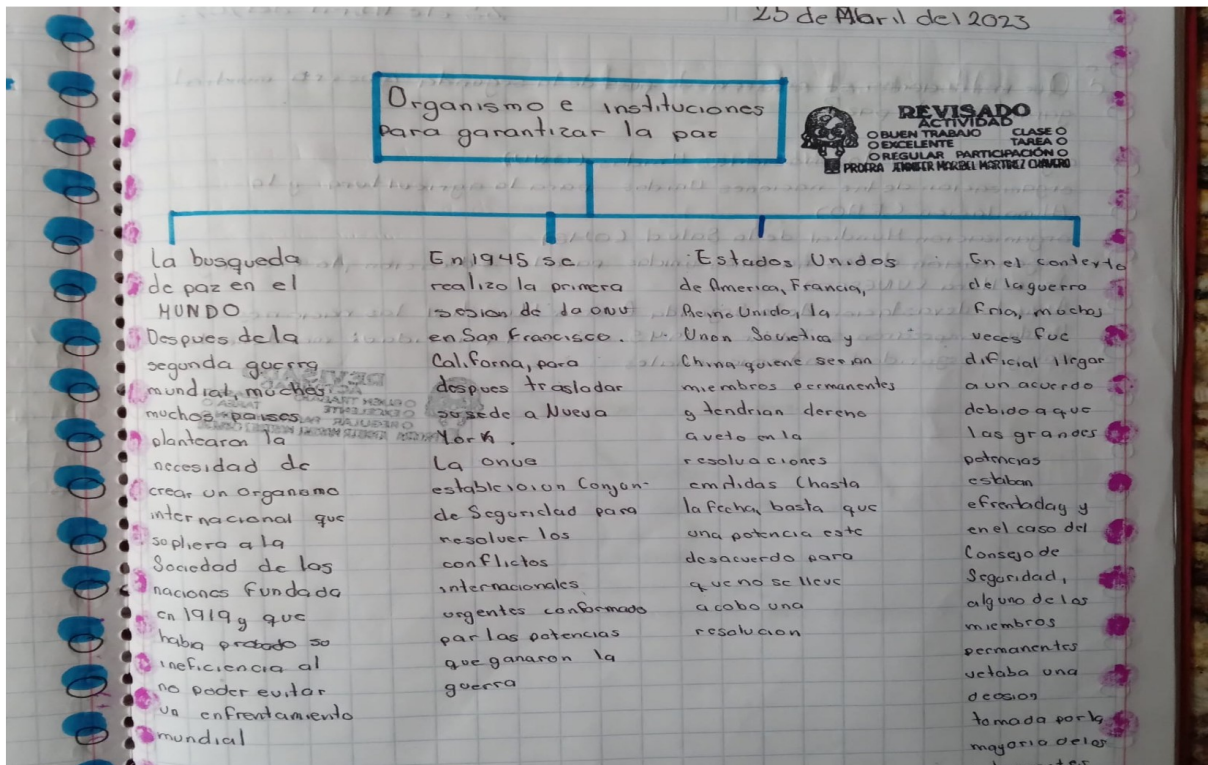 25 de Abril del 2023
Organismo e instituciones
para garantizar la paz
REVISADO
ACTIVIDAD
O BUEN TRABAJO CLASE O
O EXCELENTE TAREA O
O REGULAR PARTICIPACIÓN O
PROFRA JENNIFER MARIBEL MARTINEZ CHAVERO
La busqueda
de paz en el
MUNDO
Despues de la
segunda guerra
mundial, muchos
muchos paises
plantearon la
necesidad de
crear un organomo
internacional que
supliera a la
Sociedad de las
naciones fundada
en 1919 y que
habia probado su
ineficiencia al
no poder evitar
un enfrentamiento
mundial
En 1945 se
realizo la primera
sesion de da onu
en San Francisco.
Californa, para
despues trasladar
su sede a Nueva
York.
La onue
establecioun Conjon-
de Seguridad para
resolver los
conflictos
internacionales
urgentes conformado
par las potencias
que ganaron la
guerra
Estados Unidos
de America, Francia,
Reino Unido, la
Unon Sovietica y
China quiene serian
miembros permanentes
y tendrian dereno
a veto en la
resoluaciones
emitidas (hasta
la fecha, basta que
una potencia este
desacuerdo para
que no se lleve
a cobo una
resolucion
En el contexto
de la guerra
Fria, muchas
veces fue
dificial llegar
a un acuerdo
debido a que
las grandes
potencias
estaban
efrentaday y
en el caso del
Consejo de
Seguridad,
alguno de los
miembros
permanentes
vetaba una
decosion
tomada por la
mayoria de los